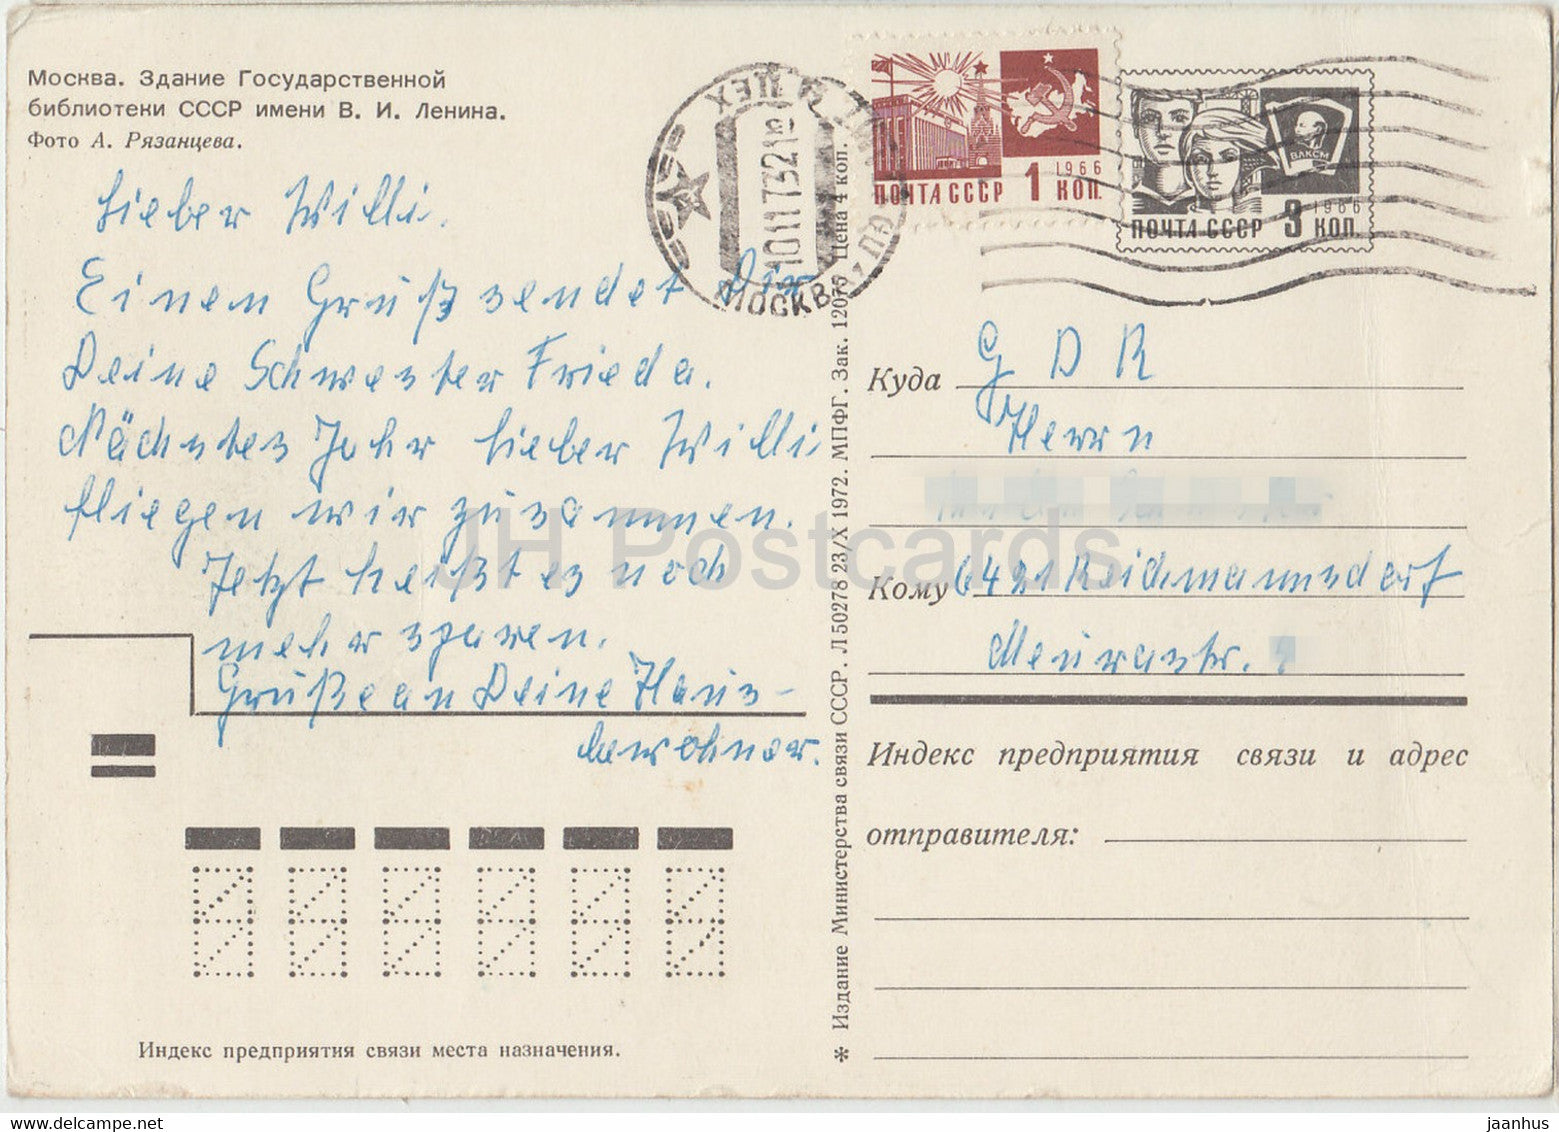 Москва. Здание Государственной
библиотеки СССР имени В. И. Ленина.
Фото А. Рязанцева.
Lieber Willi.
Einen Gruß sendet Dir
Deine Schwester Frieda.
Nächstes Jahr lieber Willi
fliegen wir zusammen.
Jetzt heißt es noch
mehr sparen.
Grüße an Deine Haus-
bewohner.
Индекс предприятия связи места назначения.
МОСКВА
10 11 73 21
ПОЧТА СССР 1 КОП.
1966
ВЛКСМ
1966
ПОЧТА СССР 3 КОП.
* Издание Министерства связи СССР. Л 50278 23/X 1972. МПФГ. Зак. 12075 Цена 4 коп.
Куда G D R
Herrn
Кому 6421 Reichmannsdorf
Meurastr.
Индекс предприятия связи и адрес
отправителя:
JH Postcards
www.delcampe.net
jaanhus